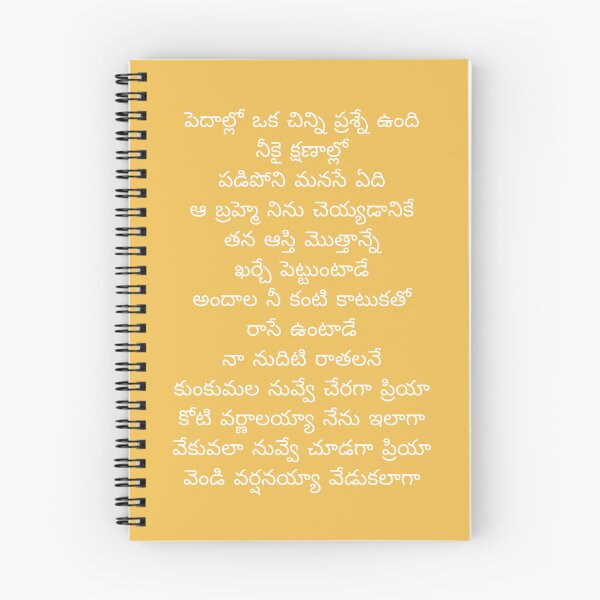 పెదాల్లో ఒక చిన్ని ప్రశ్నే ఉంది
నీకై క్షణాల్లో
పడిపోని మనసే ఏది
ఆ బ్రహ్మె నిను చెయ్యడానికే
తన ఆస్తి మొత్తాన్నే
ఖర్చే పెట్టుంటాడే
అందాల నీ కంటి కాటుకతో
రాసే ఉంటాడే
నా నుదిటి రాతలనే
కుంకుమల నువ్వే చేరగా ప్రియా
కోటి వర్ణాలయ్యా నేను ఇలాగా
వేకువలా నువ్వే చూడగా ప్రియా
వెండి వర్షనయ్యా వేడుకలాగా